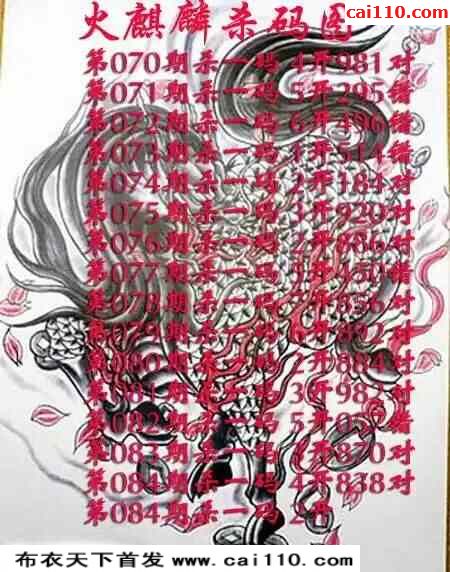 cai110.com
火麒麟杀码图
第070期杀一码 4开981对
第071期杀一码 5开295错
第072期杀一码 6开496错
第073期杀一码 1开514错
第074期杀一码 2开184对
第075期杀一码 3开920对
第076期杀一码 2开886对
第077期杀一码 开450错
第078期杀一码 开856对
第079期杀一码 6开892对
第080期杀一码 2开884对
第081期杀一码 3开98 对
第082期杀一码 5开05 错
第083期杀一码 开870对
第084期杀一码 4开838对
第084期杀一码 2开
布衣天下首发 www.cai110.com